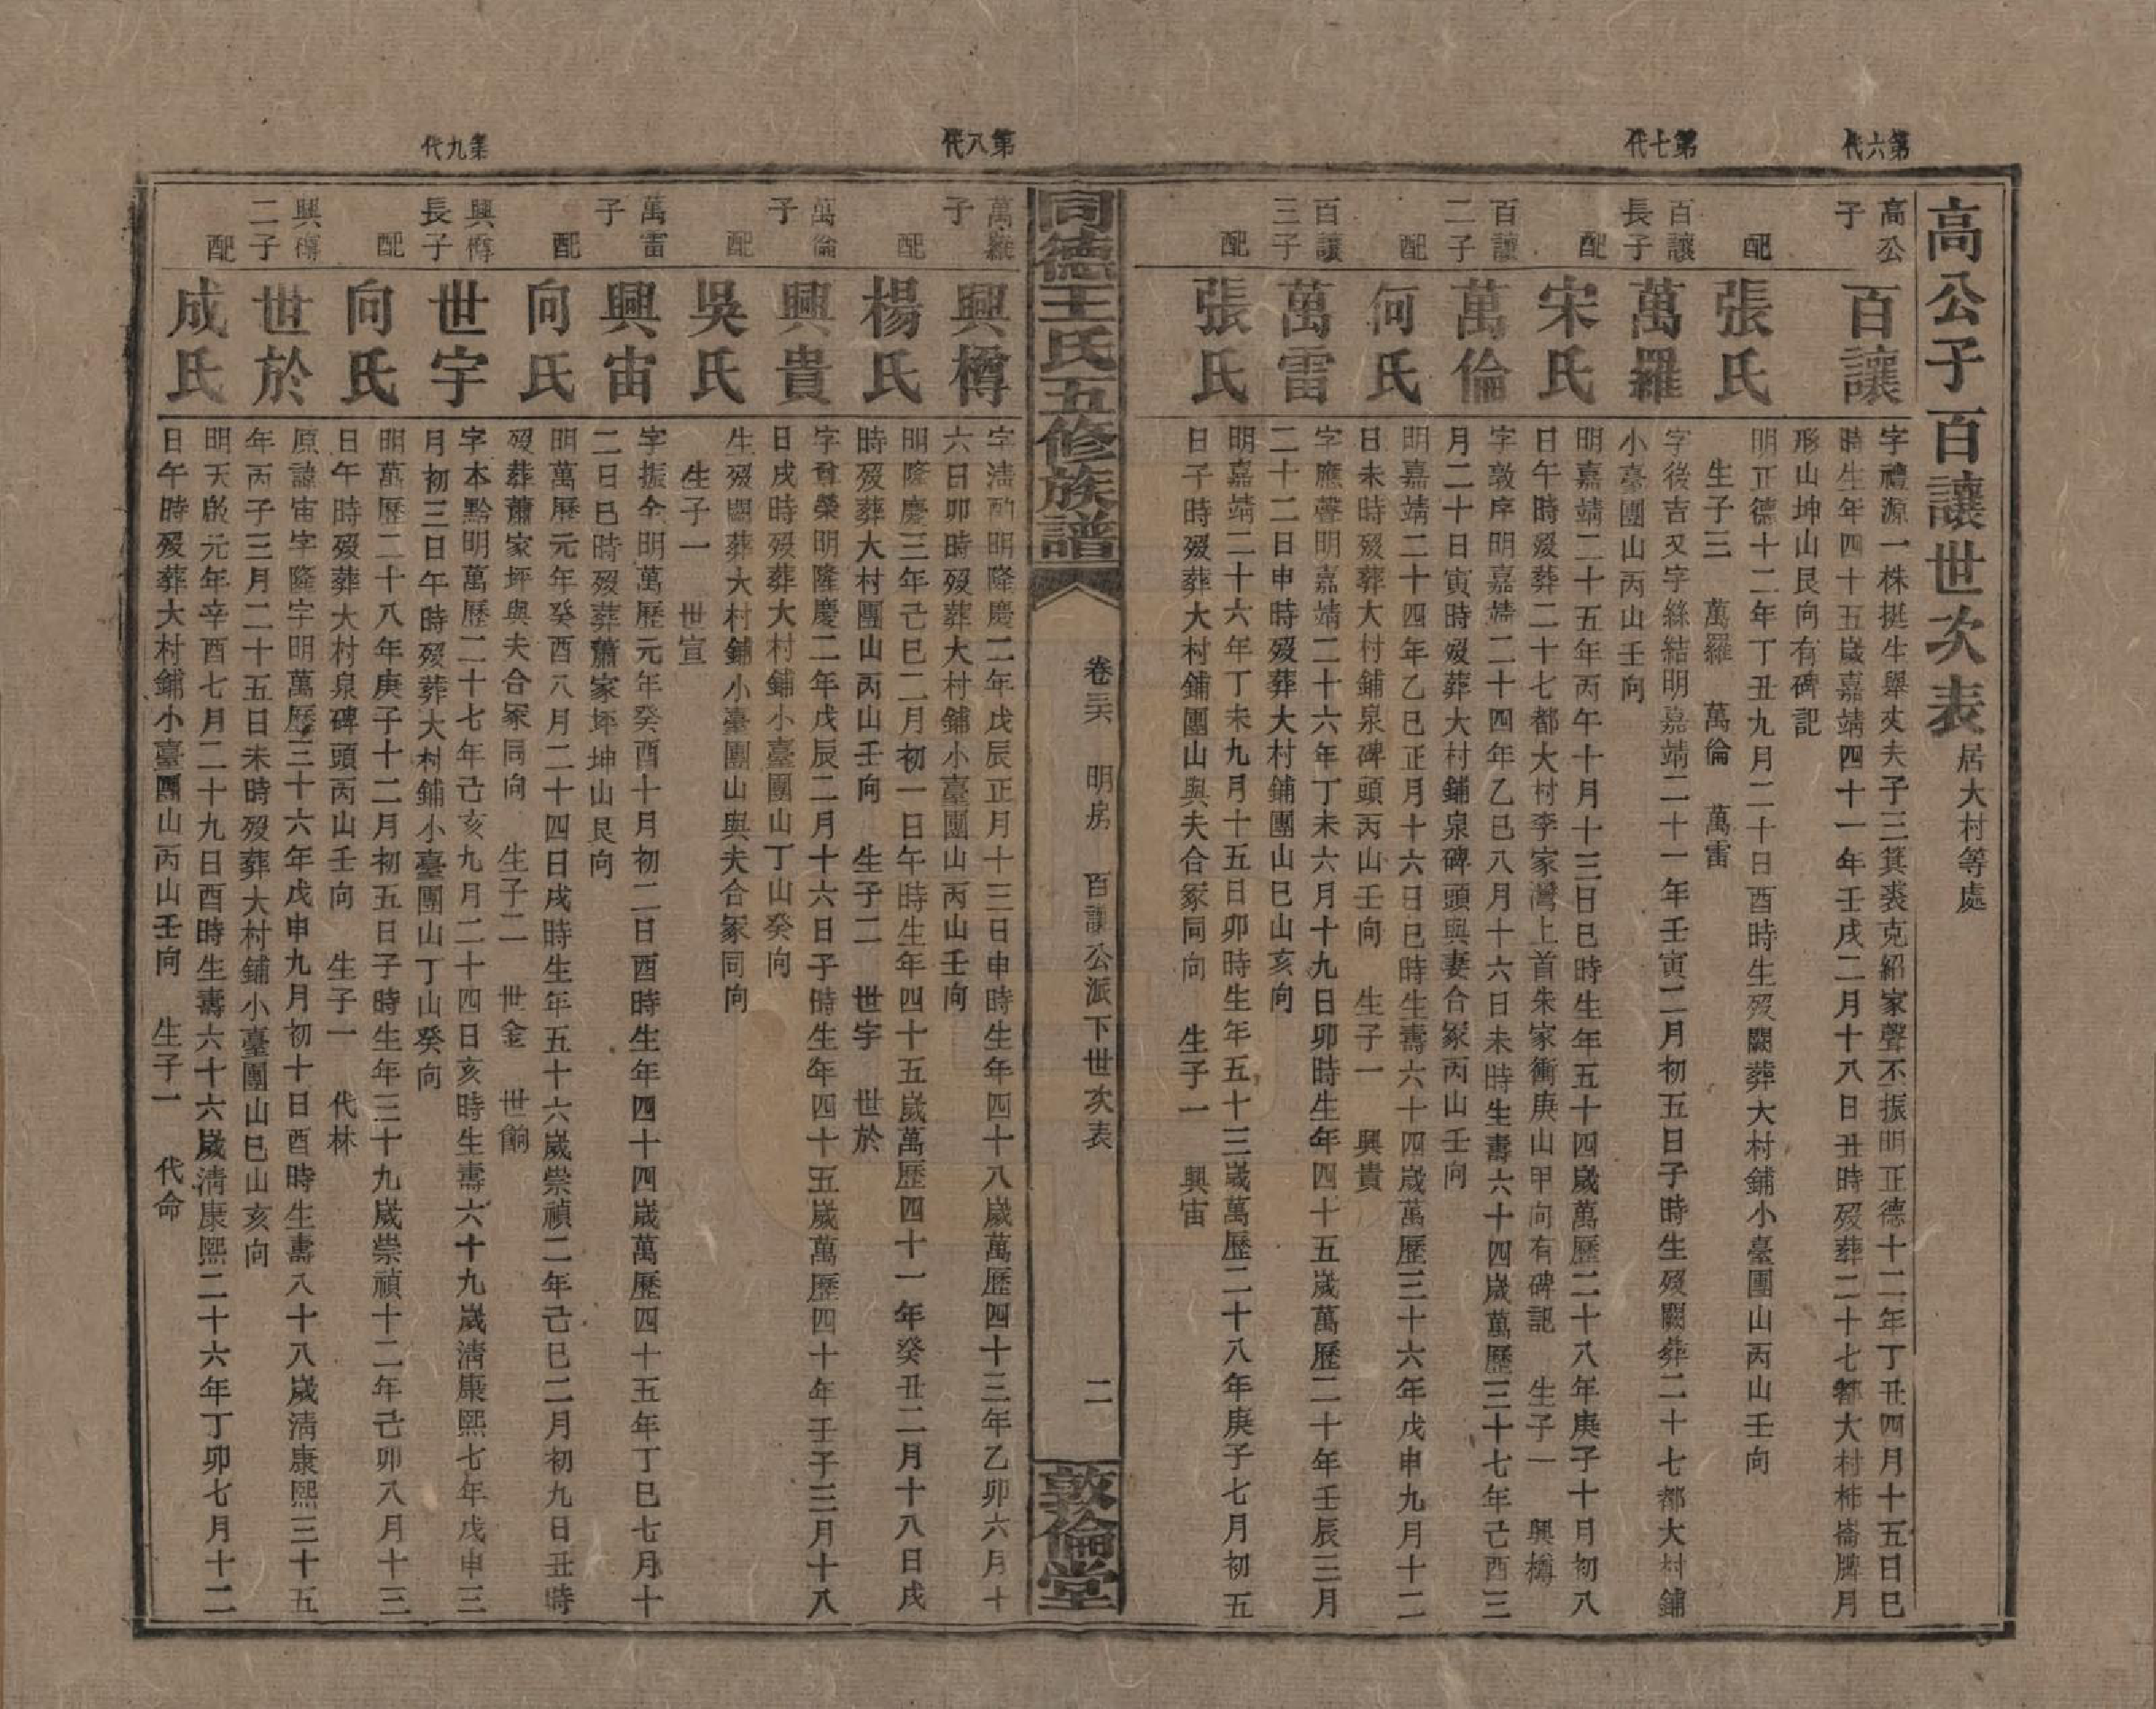 高公子百讓世次表 居大村等處
第六代
高公子 百讓
字禮源一株挺生舉丈夫子三箕裘克紹家聲丕振明正德十二年丁丑四月十五日巳
時生年四十五歲嘉靖四十一年壬戌二月十八日丑時歿葬二十七都大村柿崙腰月
形山坤山艮向有碑記
配 張氏
明正德十二年丁丑九月二十日酉時生歿闕葬大村鋪小臺團山丙山壬向
生子三 萬羅 萬倫 萬雷
第七代
百讓長子 萬羅
字後吉又字絲結明嘉靖二十一年壬寅二月初五日子時生歿闕葬二十七都大村鋪
小臺團山丙山壬向
配 宋氏
明嘉靖二十五年丙午十月十三日巳時生年五十四歲萬歷二十八年庚子十月初八
日午時歿葬二十七都大村李家灣上首朱家衝庚山甲向有碑記 生子一 興樽
百讓二子 萬倫
字敦序明嘉靖二十四年乙巳八月十六日未時生壽六十四歲萬歷三十七年己酉三
月二十日寅時歿葬大村鋪泉碑頭與妻合冢丙山壬向
配 何氏
明嘉靖二十四年乙巳正月十六日巳時生壽六十四歲萬歷三十六年戊申九月十二
日未時歿葬大村鋪泉碑頭丙山壬向 生子一 興貴
百讓三子 萬雷
字應聲明嘉靖二十六年丁未六月十九日卯時生年四十五歲萬歷二十年壬辰三月
二十二日申時歿葬大村鋪團山巳山亥向
配 張氏
明嘉靖二十六年丁未九月十五日卯時生年五十三歲萬歷二十八年庚子七月初五
日子時歿葬大村鋪團山與夫合冢同向 生子一 興宙
同德王氏五修族譜 卷三六 明房 百讓公派下世次表 二 敦倫堂
第八代
萬羅子 興樽
字清酌明隆慶二年戊辰正月十三日申時生年四十八歲萬歷四十三年乙卯六月十
六日卯時歿葬大村鋪小臺團山丙山壬向
配 楊氏
明隆慶三年己巳二月初一日午時生年四十五歲萬歷四十一年癸丑二月十八日戌
時歿葬大村團山丙山壬向 生子二 世宇 世於
萬倫子 興貴
字尊榮明隆慶二年戊辰二月十六日子時生年四十五歲萬歷四十年壬子三月十八
日戌時歿葬大村鋪小臺團山丁山癸向
配 吳氏
生歿闕葬大村鋪小臺團山與夫合冢同向
生子一 世宣
萬雷子 興宙
字振全明萬歷元年癸酉十月初二日酉時生年四十四歲萬歷四十五年丁巳七月十
二日巳時歿葬蕭家坪坤山艮向
配 向氏
明萬歷元年癸酉八月二十四日戌時生年五十六歲崇禎二年己巳二月初九日丑時
歿葬蕭家坪與夫合冢同向 生子二 世金 世餉
第九代
興樽長子 世宇
字本黔明萬歷二十七年己亥九月二十四日亥時生壽六十九歲清康熙七年戊申三
月初三日午時歿葬大村鋪小臺團山丁山癸向
配 向氏
明萬歷二十八年庚子十二月初五日子時生年三十九歲崇禎十二年己卯八月十三
日午時歿葬大村泉碑頭丙山壬向 生子一 代林
興樽二子 世於
原諱宙字隆宇明萬歷三十六年戊申九月初十日酉時生壽八十八歲清康熙三十五
年丙子三月二十五日未時歿葬大村鋪小臺團山巳山亥向
配 成氏
明天啟元年辛酉七月二十九日酉時生壽六十六歲清康熙二十六年丁卯七月十二
日午時歿葬大村鋪小臺團山丙山壬向 生子一 代命